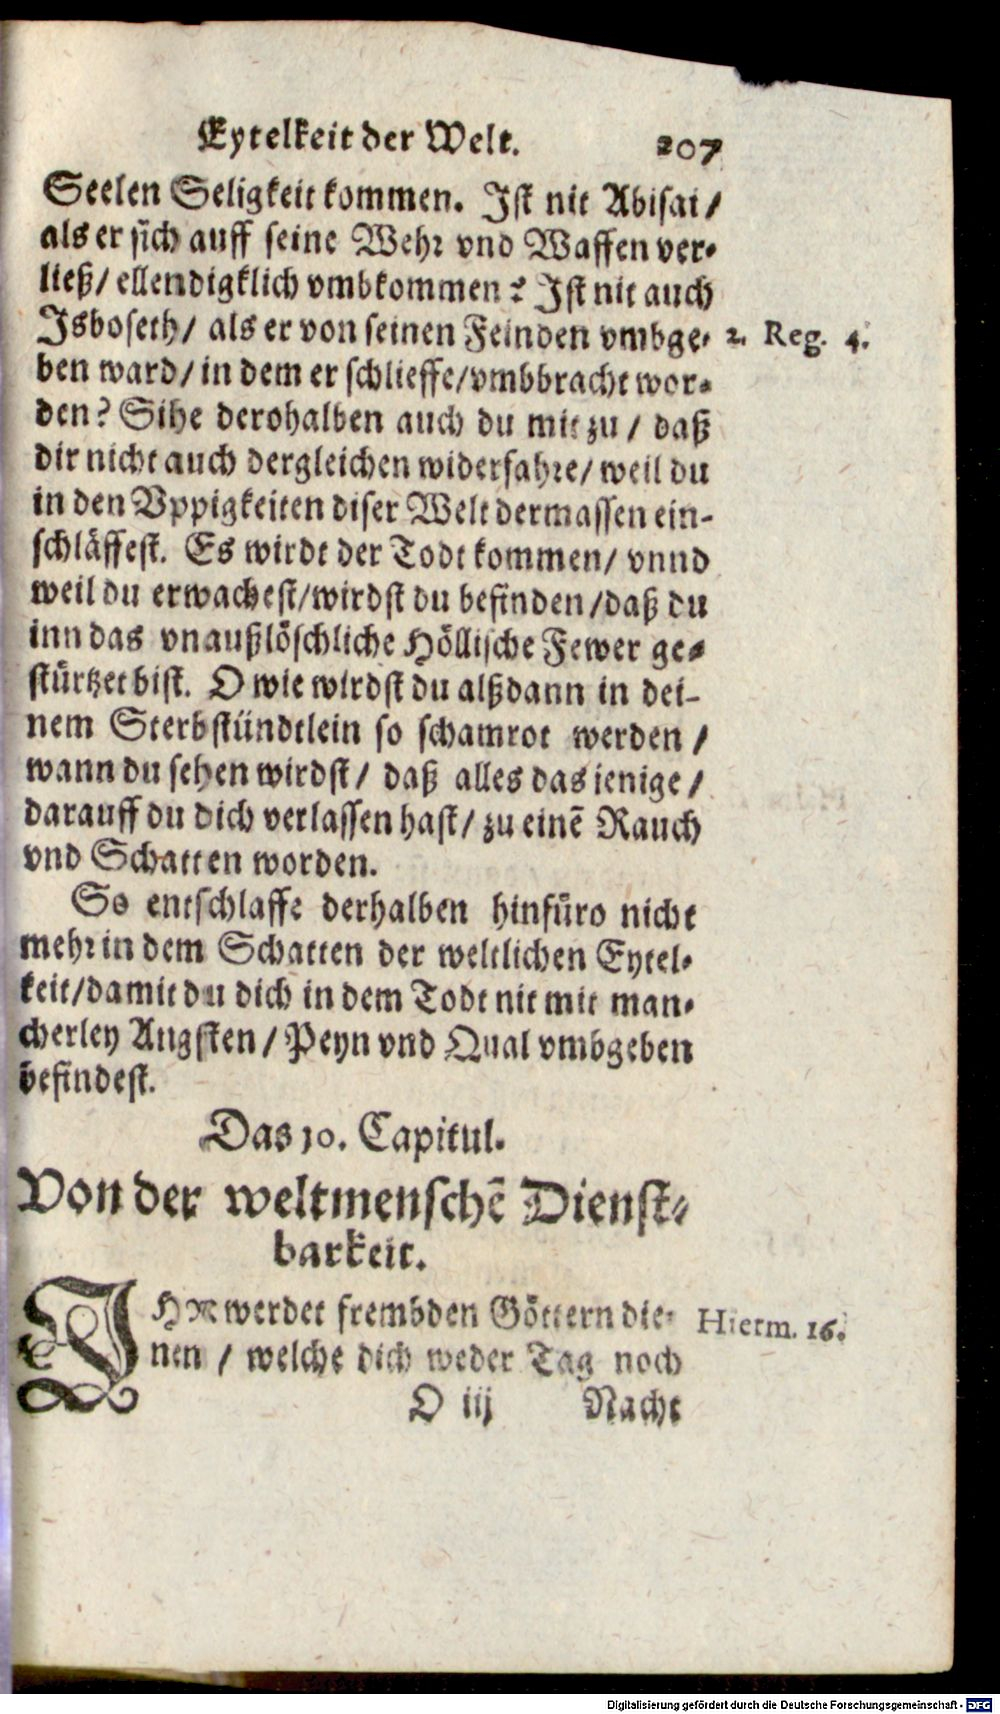 Eytelkeit der Welt. 207
Seelen Seligkeit kommen. Jst nit Abisai/
als er sich auff seine Wehr vnd Waffen ver-
ließ/ ellendigklich vmbkommen? Jst nit auch
Jsboseth/ als er von seinen Feinden vmbge- 2. Reg. 4.
ben ward/ in dem er schlieffe/vmbbracht wor-
den? Sihe derohalben auch du mit zu/ daß
dir nicht auch dergleichen widerfahre/ weil du
in den Vppigkeiten diser Welt dermassen ein-
schläffest. Es wirdt der Todt kommen/ vnnd
weil du erwachest/wirdst du befinden/daß du
inn das vnaußlöschliche Höllische Fewer ge-
stürtzet bist. O wie wirdst du alßdann in dei-
nem Sterbstündtlein so schamrot werden/
wann du sehen wirdst/ daß alles das jenige/
darauff du dich verlassen hast/ zu einē Rauch
vnd Schatten worden.
So entschlaffe derhalben hinfüro nicht
mehr in dem Schatten der weltlichen Eytel-
keit/damit du dich in dem Todt nit mit man-
cherley Angsten/ Peyn vnd Qual vmbgeben
befindest.
Das 10. Capitul.
Von der weltmenschē Dienst-
barkeit.
JHr werdet frembden Göttern die- Hierm. 16.
nen / welche dich weder Tag noch
O iij Nacht
Digitalisierung gefördert durch die Deutsche Forschungsgemeinschaft - DFG